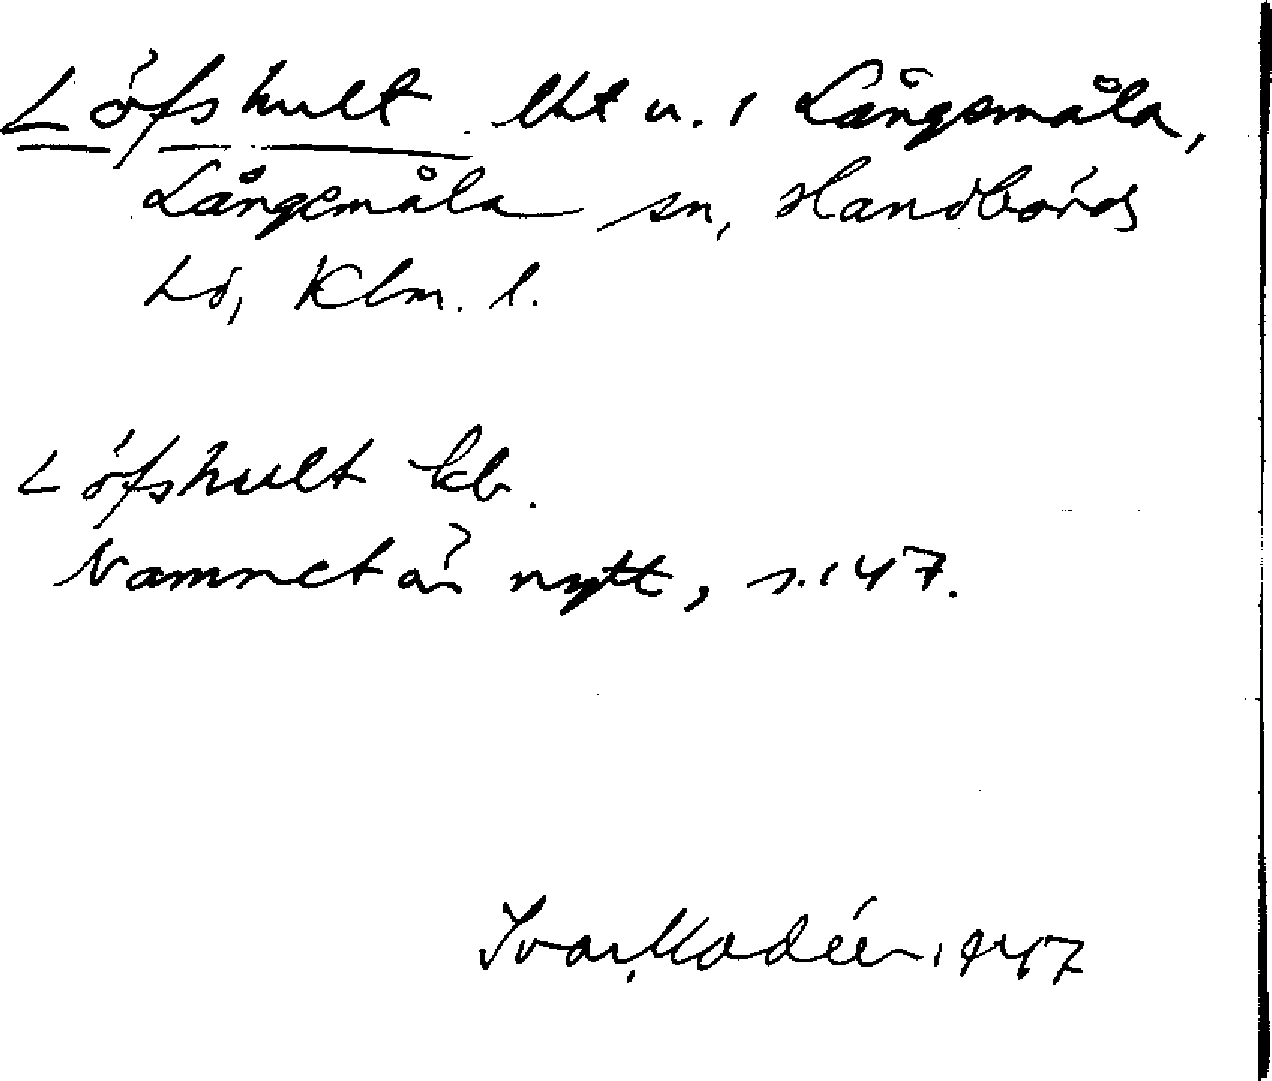 Löfshult lht u. i Långemåla,
Långemåla sn, Handbörds
hd, Klm. l.
Löfshult kb.
Namnet är nytt, s. 147.
Ivar Modéer 1947